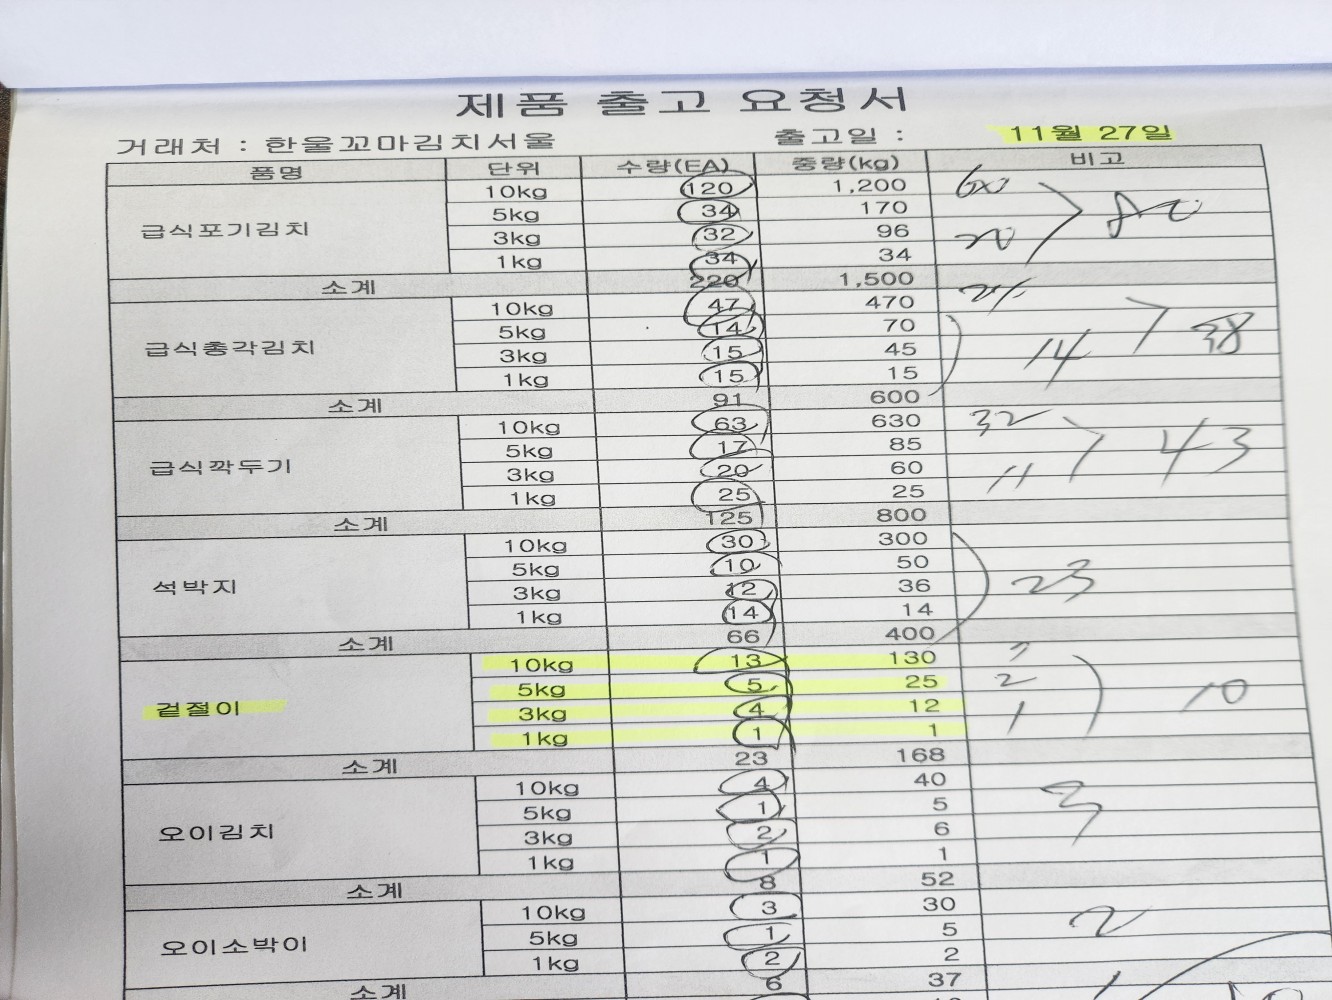 제품 출고 요청서
거래처 : 한울꼬마김치서울 출고일 : 11월 27일
품명 단위 수량(EA) 중량(kg) 비고
급식포기김치
10kg 120 1,200 60
5kg 34 170
3kg 32 96 20
1kg 34 34
80
소계 220 1,500
급식총각김치
10kg 47 470
5kg 14 70
3kg 15 45 14
1kg 15 15
38
소계 91 600
급식깍두기
10kg 63 630 32
5kg 17 85
3kg 20 60 11
1kg 25 25
43
소계 125 800
석박지
10kg 30 300
5kg 10 50
3kg 12 36 23
1kg 14 14
소계 66 400
겉절이
10kg 13 130 7
5kg 5 25 2
3kg 4 12 1
1kg 1 1
10
소계 23 168
오이김치
10kg 4 40
5kg 1 5 3
3kg 2 6
1kg 1 1
소계 8 52
오이소박이
10kg 3 30
5kg 1 5 2
1kg 2 2
소계 6 37